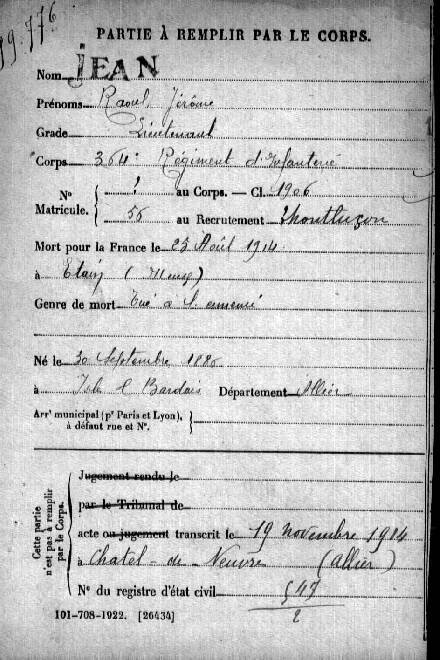 19.776
PARTIE À REMPLIR PAR LE CORPS.
Nom JEAN
Prénoms Raoul Jérôme
Grade Lieutenant
Corps 364e Régiment d'Infanterie
N° Matricule. { ! au Corps. — Cl. 1906
56 au Recrutement Montluçon
Mort pour la France le 25 Août 1914
à Etain (Meuse)
Genre de mort Tué à l'ennemi
Né le 30 Septembre 1886
à Isle et Bardais Département Allier
Arrt municipal (pr Paris et Lyon), à défaut rue et N°.
Cette partie n'est pas à remplir par le Corps.
Jugement rendu le
par le Tribunal de
acte ou jugement transcrit le 19 novembre 1914
à Chatel-de-Neuvre (Allier)
N° du registre d'état civil
101-708-1922. [26434]